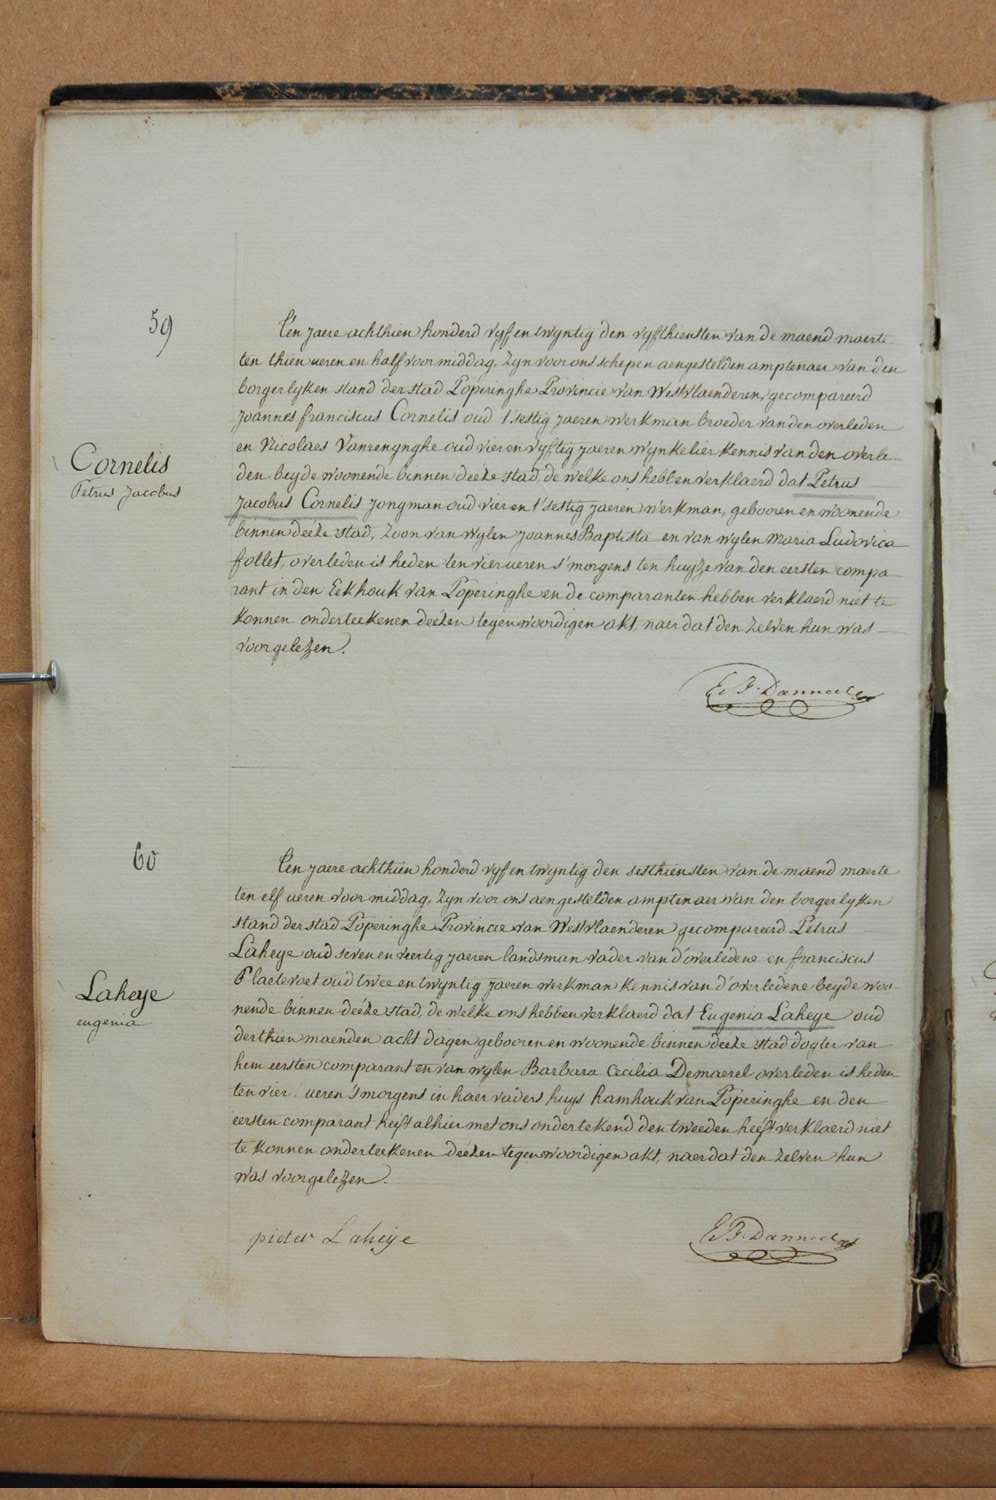 59
Een jaere achthien honderd vyf en twyntig den vyfthiensten van de maend maerte
ten thien ueren en half voor middag, zyn voor ons schepen aengestelden amptenaer van den
borgerlyken stand der stad Poperinghe Provincie van Westvlaenderen, gecompareerd
joannes franciscus Cornelis oud t'sestig jaeren werkman broeder van den overleden
en Nicolaes Vanrenynghe oud vier en vyftig jaeren wynkelier kennis van den overle-
den beyde woonende binnen deeze stad, de welke ons hebben verklaerd dat Petrus
Cornelis
Petrus Jacobus
Jacobus Cornelis jongman oud vier en t'sestig jaeren werkman, gebooren en woonende
binnen deeze stad, zoon van wylen joannes Baptista en van wylen Maria Ludovica
follet, overleden is heden ten vier ueren s'morgens ten huyze van den eersten compa-
rant in den Eekhouk van Poperinghe en de comparanten hebben verklaerd niet te
konnen onderteekenen deezen tegenwoordigen akt, naer dat den zelven hun was
voorgelezen.
60
Een jaere achthien honderd vyf en twyntig den sesthiensten van de maend maerte
ten elf ueren voor middag, zyn voor ons aengestelden amptenaer van den borgerlyken
stand der stad Poperinghe Provincie van Westvlaenderen gecompareerd Petrus
Laheye oud seven en veertig jaeren landsman vader van d'overledene en franciscus
Plaetevoet oud twee en twyntig jaeren werkman kennis van d'overledene beyde woo-
nende binnen deeze stad, de welke ons hebben verklaerd dat Eugenia Laheye oud
Laheye
eugenia
derthien maenden acht dagen gebooren en woonende binnen deeze stad dogter van
hem eersten comparant en van wylen Barbara Cecilia Demaerel overleden is heden
ten vier ueren s'morgens in haer vaders huys hamhouk van Poperinghe en den
eersten comparant heeft alhier met ons ondertekend den tweeden heeft verklaerd niet
te konnen onderteekenen deezen tegenwoordigen akt, naer dat den zelven hun
was voorgelezen.
pieter Laheÿe